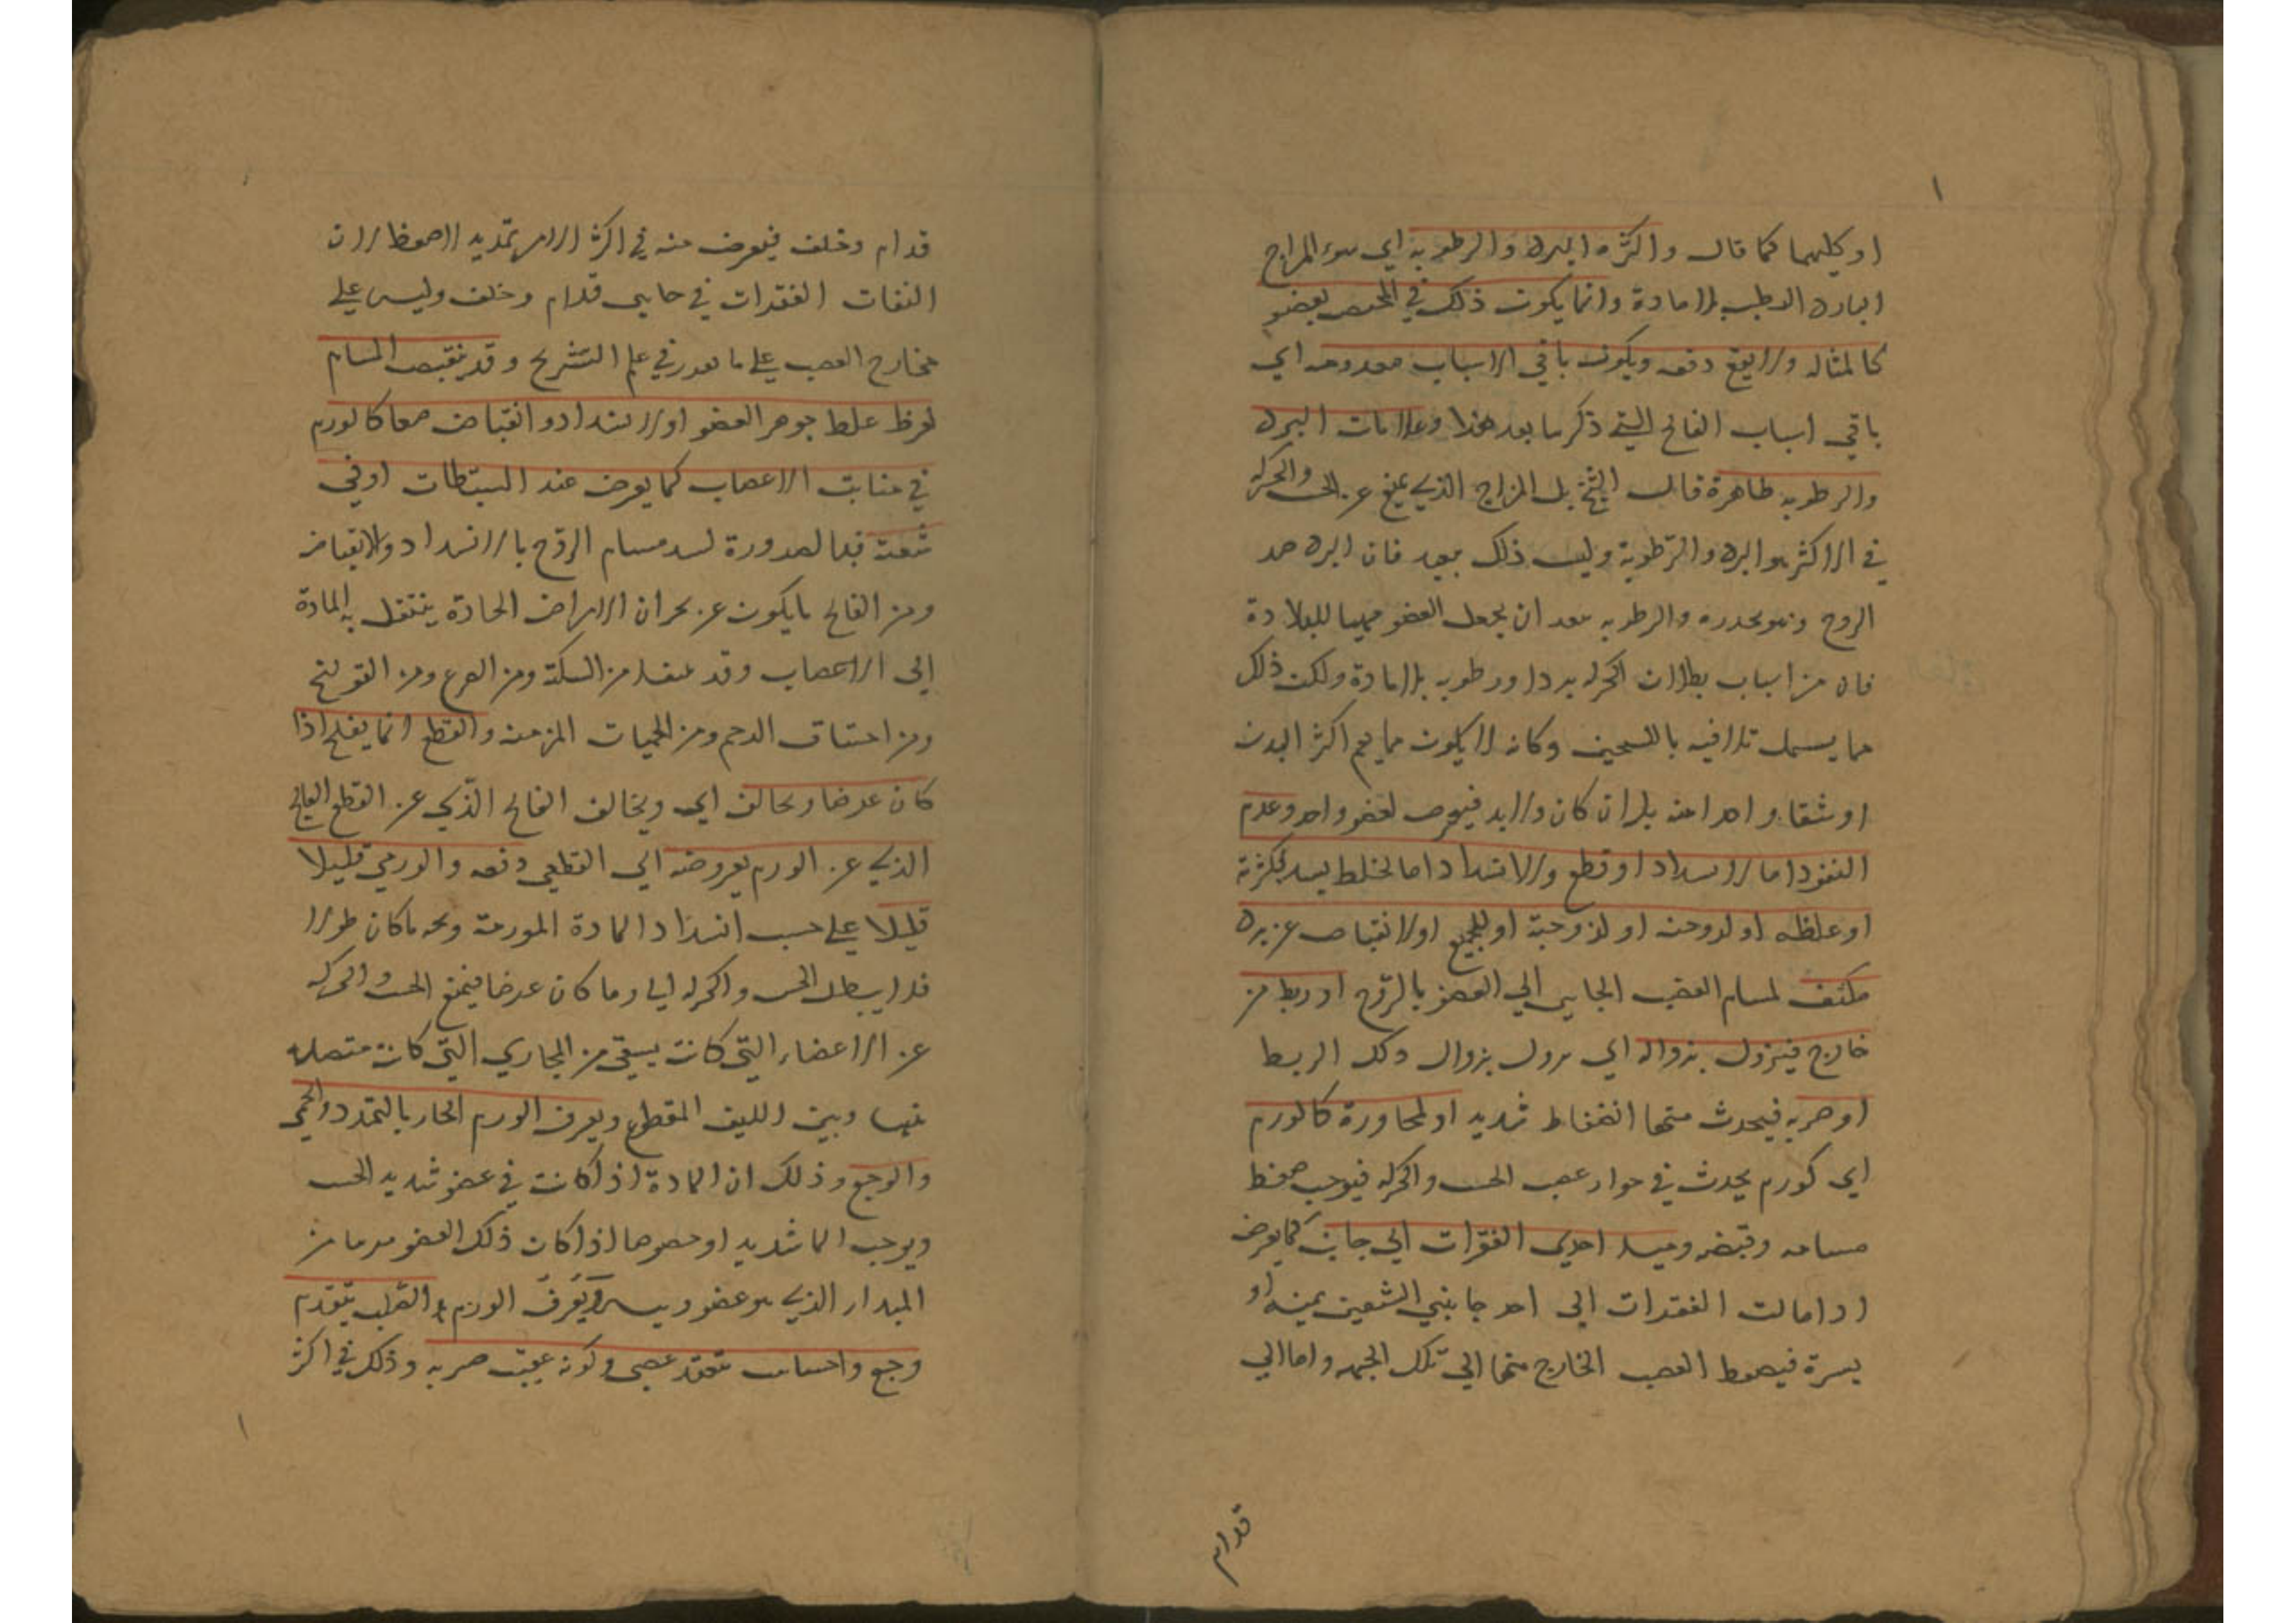 او كليهما كما قال واكثره البرد والرطوبة اي سوء المزاج
البارد الرطب بلا مادة وانما يكون ذلك في الملخص بعضو
كامثاله ولا يقع دفعه ويكون باقي الاسباب معدومه اي
باقي اسباب الفالج التي ذكرها بعد هذا وعلامات البرد
والرطوبه ظاهرة قال الشيخ بل المزاج الذي يمنع عن الحس والحركة
في الاكثر هو البرد والرطوبة وليس ذلك ببعيد فان البرد ضد
الروح وهو يخدره والرطوبه بعد ان يجعل العضو مهيا للبلادة
فان من اسباب بطلان الحركه بردا ورطوبه بلا مادة ولكن ذلك
مما يسهل تلافيه بالتسخين وكانه لا يكون مما يعم اكثر البدن
او شقا واحدا منه بل ان كان ولابد فيعرض لعضو واحد وعدم
النفوذ اما لانسداد او قطع والانسداد اما لخلط يسد بكثرته
او غلظه او لزوجته او للجميع او لانقباض عن برد
مكثف لمسام العصب الجايي الي العضو بالروح او ربط من
خارج فيزول بزواله اي يزول بزوال ذلك الربط
او ضربه فيحدث منها انضغاط شديد او لمجاورة كالورم
اي كورم يحدث في جوار عصب الحس والحركه فيوجب ضغط
مسامه وقبضه وميل احدي الفقرات الي جانب كما يعرض
اذا مالت الفقرات الي احد جانبي الشقين يمينه او
يسرة فيضغط العصب الخارج منها الي تلك الجهه واما الي
قدام
قدام وخلف فيعرض منه في اكثر الامر تمديد لا ضغط لان
التفات الفقرات في جانبي قدام وخلف وليس علي
مخارج العصب علي ما تقرر في علم التشريح وقد ينقبض المسام
لفرط غلظ جوهر العضو او لانسداد وانقباض معا كالورم
في منابت الاعصاب كما يعرض عند السقطات او في
شعبه فبالضرورة تسد مسام الروح بالانسداد والانقباض
ومن الفالج ما يكون عن بحران الامراض الحادة ينتقل به المادة
الي الاعصاب وقد ينتقل من السكتة ومن الصرع ومن القولنج
ومن احتناق الرحم ومن الحميات المزمنه والقطع انما يفلج اذا
كان عرضا ويخالف اي ويخالف الفالج الذي عن القطع الفالج
الذي عن الورم بعروضه اي القطعي دفعه والورمي قليلا
قليلا علي حسب انسداد المادة المورمة ونحو ما كان طولا
فلا يبطل الحس والحركه ايا وما كان عرضا فيمنع الحس والحركه
عن الاعضاء التي كانت يستقي من المجاري التي كانت متصله
بينها وبين الليف المقطوع ويعرف الورم الحار بالتمدد والحمي
والوجع وذلك ان المادة اذا كانت في عضو شديد الحس
ويوجب الما شديدا وخصوصا اذا كان ذلك العضو
المبدا الذي هو عضو رييس ويعرف الورم الصلب بتقدم
وجع واحساس بتعقد عصبي وكونه عقيب ضربه وذلك في اكثر